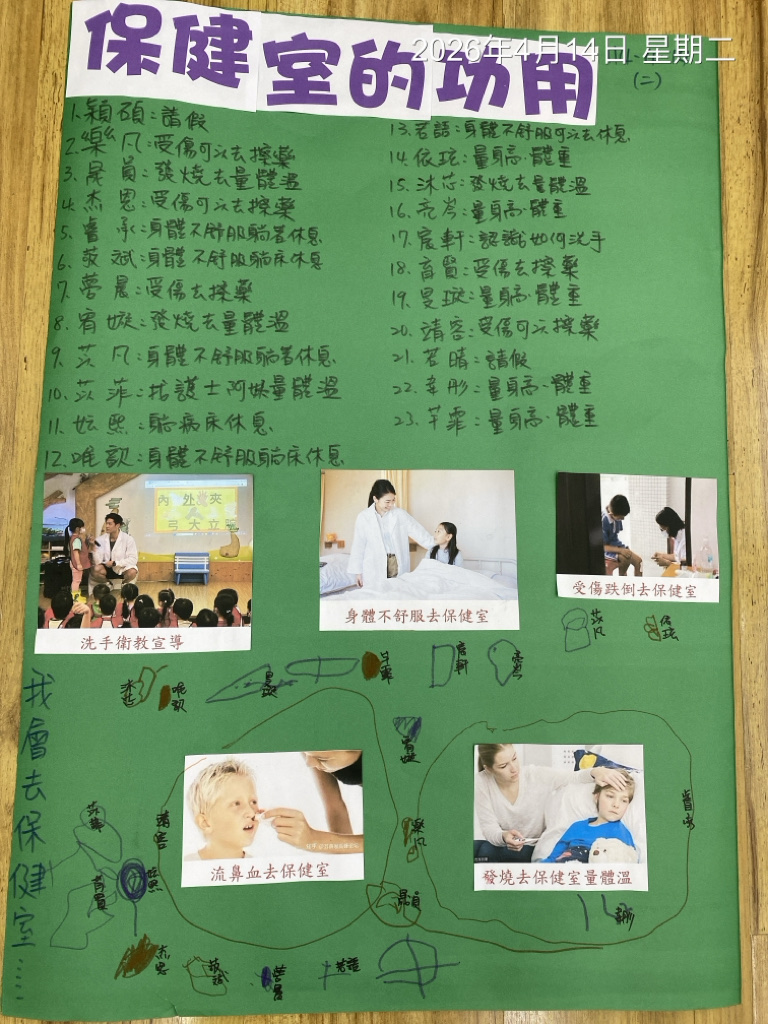 保健室的功用
2026年4月14日 星期二
(二)
1.穎碩:請假
2.樂凡:受傷可以去擦藥
3.晟員:發燒去量體溫
4.杰恩:受傷可以去擦藥
5.睿承:身體不舒服躺著休息
6.苡斌:身體不舒服躺床休息
7.蕾晨:受傷去擦藥
8.宥嫙:發燒去量體溫
9.苡凡:身體不舒服躺著休息
10.苡菲:找護士阿姨量體溫
11.妘熙:躺病床休息
12.唯歆:身體不舒服躺床休息
13.若語:身體不舒服可以去休息
14.依玹:量身高、體重
15.沐芯:發燒去量體溫
16.亮岑:量身高、體重
17.宸軒:認識如何洗手
18.育賢:受傷去擦藥
19.旻璇:量身高、體重
20.靖容:受傷可以擦藥
21.若晴:請假
22.幸彤:量身高、體重
23.芊霏:量身高、體重
內外夾
弓大立
洗手衛教宣導
身體不舒服去保健室
受傷跌倒去保健室
我會去保健室……
流鼻血去保健室
發燒去保健室量體溫
苡凡
依玹
沐芯
唯歆
旻璇
芊霏
宸軒
亮岑
宥嫙
苡菲
靖容
樂凡
睿承
育賢
妘熙
晟員
杰恩
若語